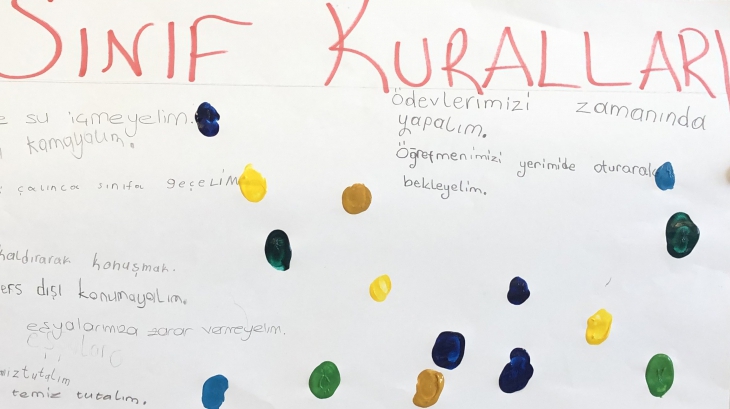 SINIF KURALLARI
su içmeyelim.
kamayalım.
çalınca sınıfa geçeLİM
kaldırarak konuşmak.
ers dışı konumayalım.
eşyalarımıza zarar vermeyelim.
mıztutalım
temiz tutalım.
Ödevlerimizi zamanında
yapalım.
Öğretmenimizi yerimide oturarak
bekleyelim.